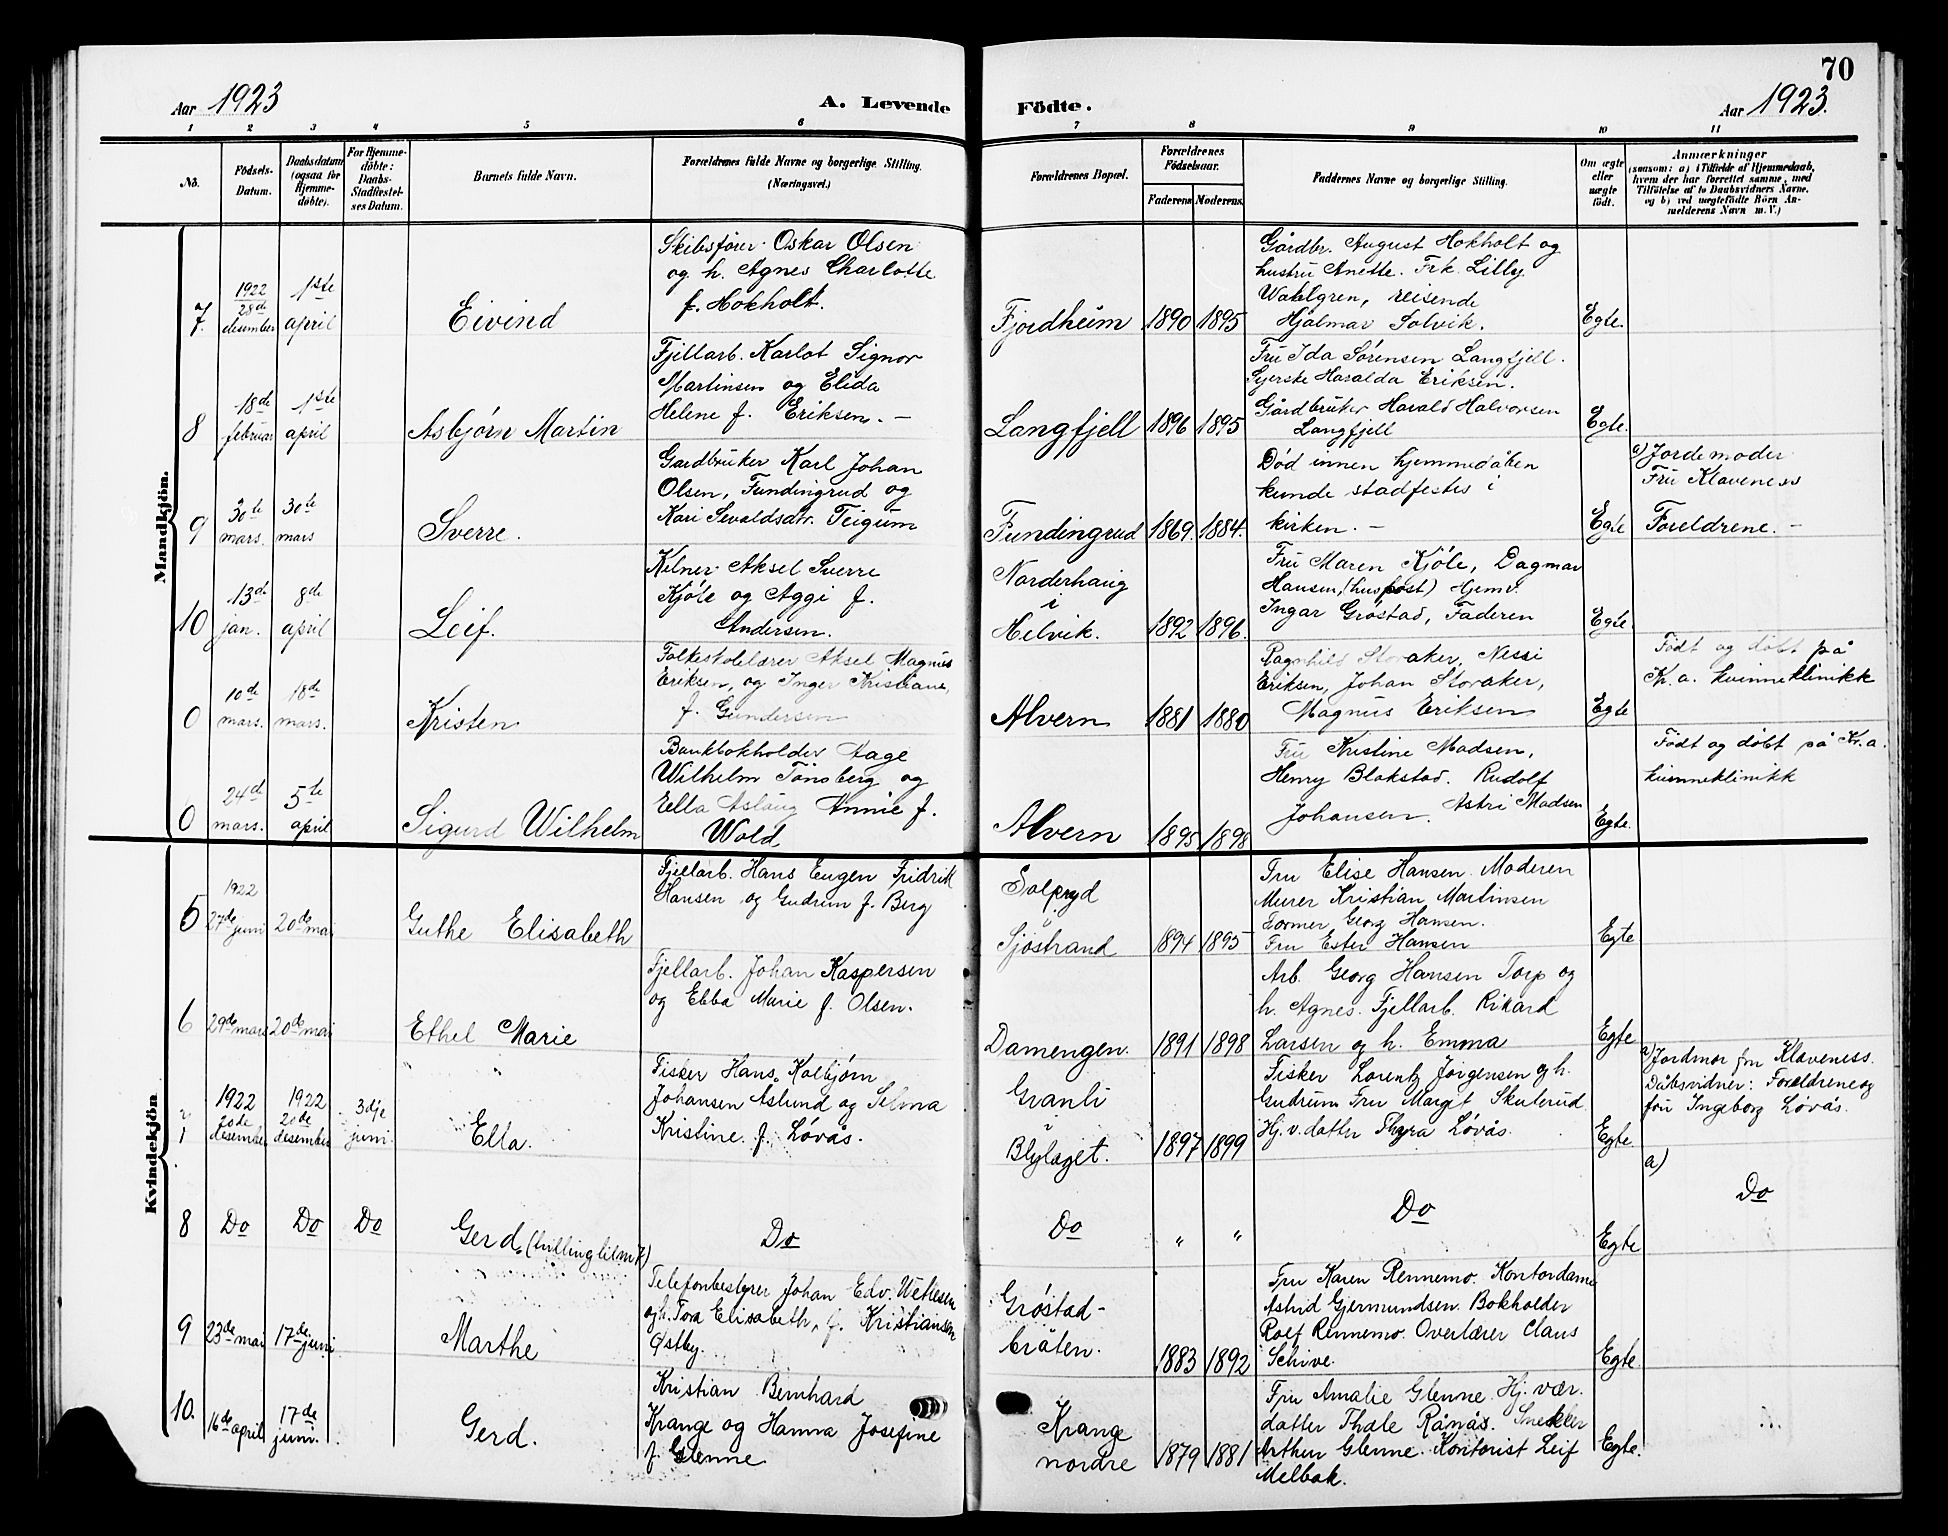 70
Aar 1923
A. Levende Födte.
Aar 1923.
1 2 3 4 5 6 7 8 9 10 11
No.
Födsels-
Datum.
Daabsdatum
(ogsaa for
Hjemme-
döbte).
For Hjemme-
döbte:
Daabs-
Stadfæstel-
ses Datum.
Barnets fulde Navn.
Forældrenes fulde Navne og borgerlige Stilling.
(Næringsvei.)
Forældrenes Bopæl.
Forældrenes
Födselsaar.
Faderens Moderens
Faddernes Navne og borgerlige Stilling.
Om ægte
eller
uægte
födt.
Anmærkninger
(saasom: a) i Tilfælde af Hjemmedaab,
hvem der har forrettet samme, med
Tilföielse af to Daabsvidners Navne,
og b) ved uægtefödte Börn An-
melderens Navn m. V.)
Mandkjön.
7.
1922
28de
desember
1ste
april
Eivind
Skibsfører Oskar Olsen
og h. Agnes Charlotte
f. Hokholt.
Fjordheim
1890 1895
Gårdbr. August Hokholt og
hustru Anette. Frk. Lilly
Wahlgren, reisende
Hjalmar Solvik.
Egte.
8
18de
februar
1ste
april
Asbjørn Martin
Fjellarb. Karlot Signor
Martinsen og Elida
Helene f. Eriksen. -
Langfjell
1896 1895
Fru Ida Sørensen Langfjell.
Syerske Haralda Eriksen.
Gårdbruker Harald Halvorsen
Langfjell
Egte.
9
30te
mars.
30te
mars
Sverre.
Gardbruker Karl Johan
Olsen, Fundingrud og
Kari Sevaldsdtr. Teigum
Fundingrud
1869. 1884.
Død innen hjemmedåben
kunde stadfestes i
kirken. -
Egte
a) Jordemoder
Fru Klaveness
Foreldrene. -
10
13de
jan.
8de
april
Leif.
Kelner Aksel Sverre
Kjøle og Aggi f.
Andersen.
Norderhaug
i
Helvik.
1892 1896.
Fru Maren Kjøle, Dagmar
Hansen, (huspost) Hjemv.
Ingar Grøstad, Faderen
Egte.
0
10de
mars.
18de
mars.
Kristen
Folkeskolelærer Aksel Magnus
Eriksen, og Inger Kristiane,
f. Gundersen
Alvern
1881 1880
Ragnhild Storaker, Nessi
Eriksen, Johan Storaker,
Magnus Eriksen
Egte
Født og døbt på
Kr.a. kvinneklinikk
0
24de
mars.
5te
april
Sigurd Wilhelm
Bankbokholder Aage
Wilhelm Tönsberg og
Ella Aslaug Annie f.
Wold
Alvern
1895 1898
Fru Kristine Madsen,
Henry Blakstad. Rudolf
Johansen. Astri Madsen
Egte.
Født og døbt på Kr.a.
kvinneklinikk
Kvindekjön
5
1922
27de juni
20de mai
Guthe Elisabeth
Fjellarb. Hans Eugen Fridrik
Hansen og Gudrun f. Berg
Solpryd
Sjöstrand
1894 1895
Fru Elise Hansen. Moderen
Murer Kristian Martinsen
Former Georg Hansen.
Fru Ester Hansen
Egte
6
29de mars
20de mai
Ethel Marie
Fjellarb. Johan Kaspersen
og Ebba Marie f. Olsen.
Damengen.
1891 1898
Arb. Georg Hansen Torp og
h. Agnes. Fjellarb. Rikard
Larsen og h. Emma
Egte
1922
20de
desember
1922
20de
desember
3dje
juni.
Ella.
Fisker Hans Kolbjørn
Johansen Aslund og Selma
Kristine f. Løvås.
Granli
i
Blylaget.
1897 1899
Fisker Lorentz Jørgensen og h.
Gudrun Fru Margit Skuterud
Hj.v. datter Thyra Løvås.
Egte
a) Jordmor fru Klaveness.
Dåbsvidner: Foreldrene og
fru Ingeborg Løvås.
8
Do Do Do
Gerd. (tvilling til nr 7)
Do
Do
" "
Do
Egte
a)
Do
9
23de mai
17de juni
Marthe
Telefonbestyrer Johan Edv. Wetlesen
og h. Tora Elisabeth, f. Kristiansen
Østby.
Grøstad-
bråten.
1883 1892
Fru Karen Rennemo. Kontordame
Astrid Gjermundsen. Bokholder
Rolf Rennemo. Overlærer Claus
Schive.
Egte
10.
16de april
17de
juni.
Gerd.
Kristian Bernhard
Krange og Hanna Josefine
f. Glenne
Krange
nordre
1879 1881
Fru Amalie Glenne. Hj. vær.
datter Thale Rånås. Snekker
Arthur Glenne. Kontorist Leif
Melbak.
Egte.